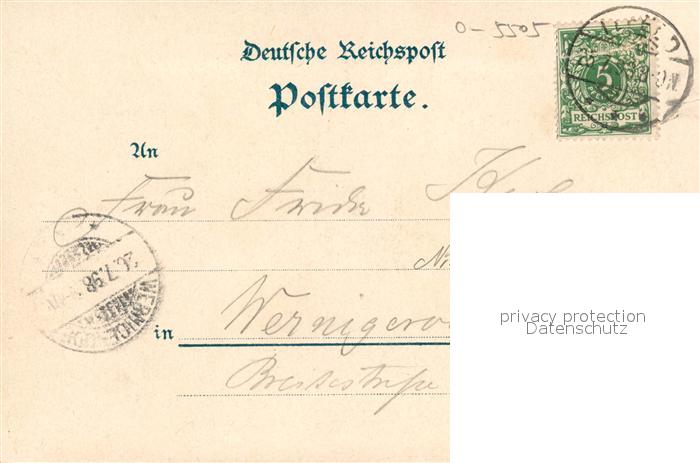 O-5505
Deutsche Reichspost
Postkarte.
5
REICHSPOST
An
Frau Frida
N:
26.7.98
WERNIGE
in Wernigero
Breitestraße
privacy protection
Datenschutz